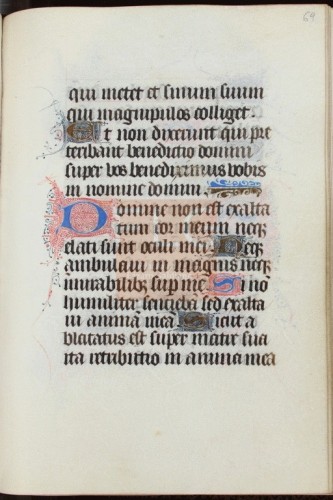 69
qui metet et sinum suum
qui manipulos colliget.
Et non dixerunt qui pre
teribant benedictio domini
super vos benediximus vobis
in nomine domini
Domine non est exalta
tum cor meum neqȝ
elati sunt oculi mei Neqȝ
ambulavi in magnis neqȝ
mirabilibȝ sup me Si nō
humiliter senciebā sed exalta
vi animā mea Sicut a
blactatus est super matre sua
ita retributio in anima mea